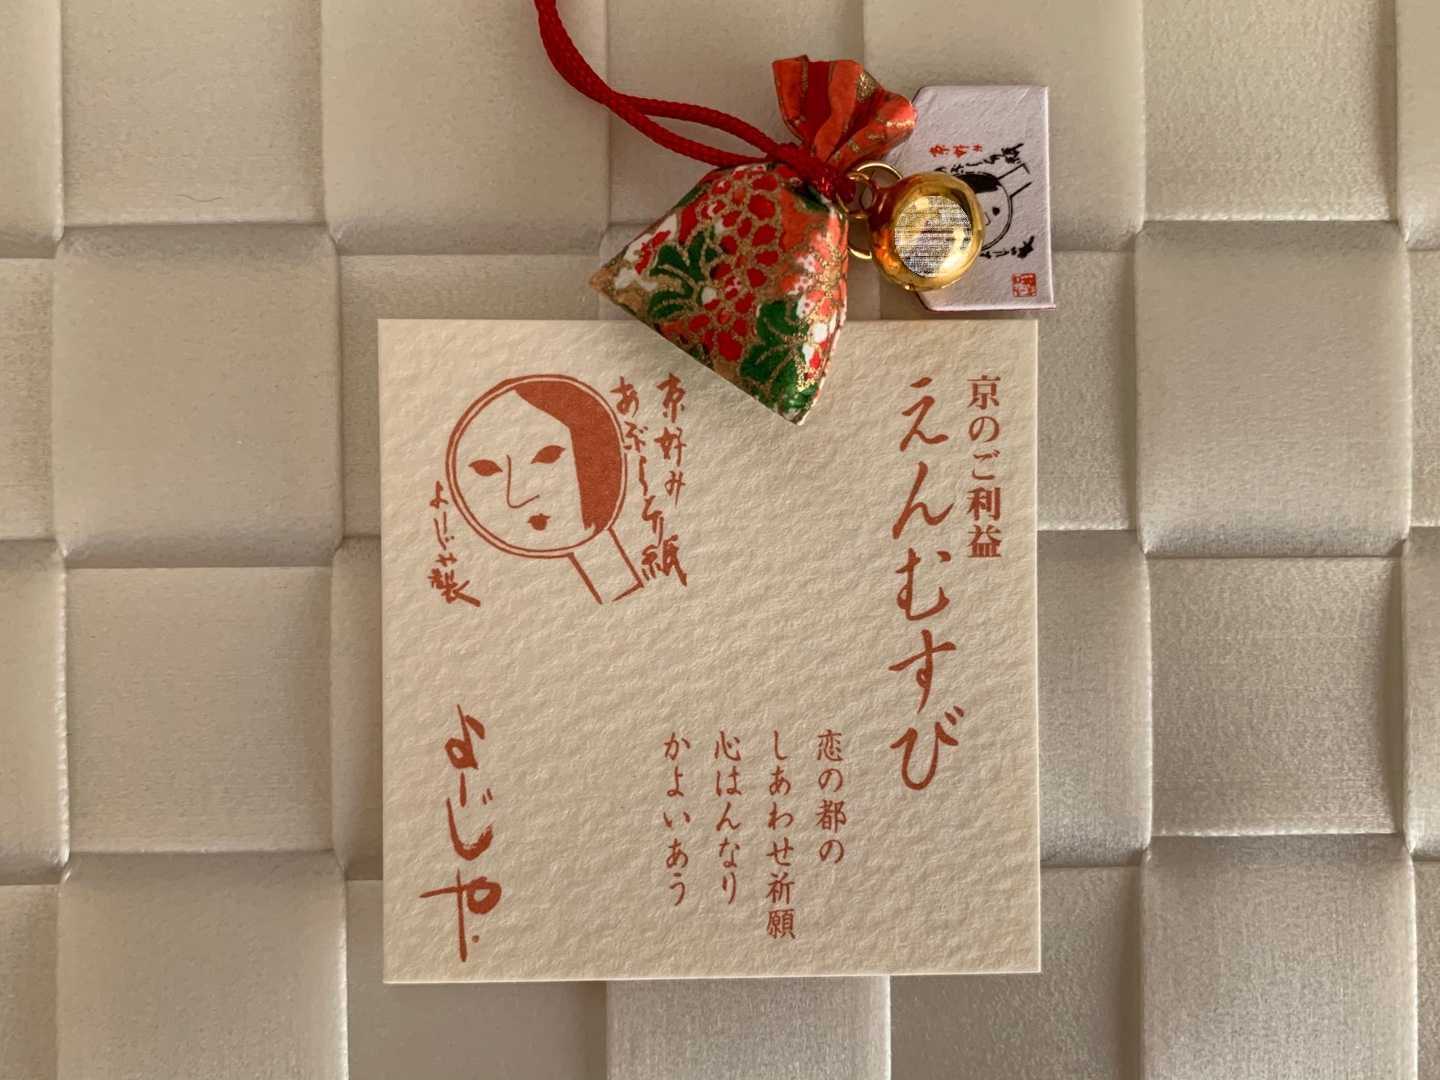 京のご利益
えんむすび
恋の都の
しあわせ祈願
心はんなり
かよいあう
京好み
あぶらとり紙
よーじや製
よーじや
京好み